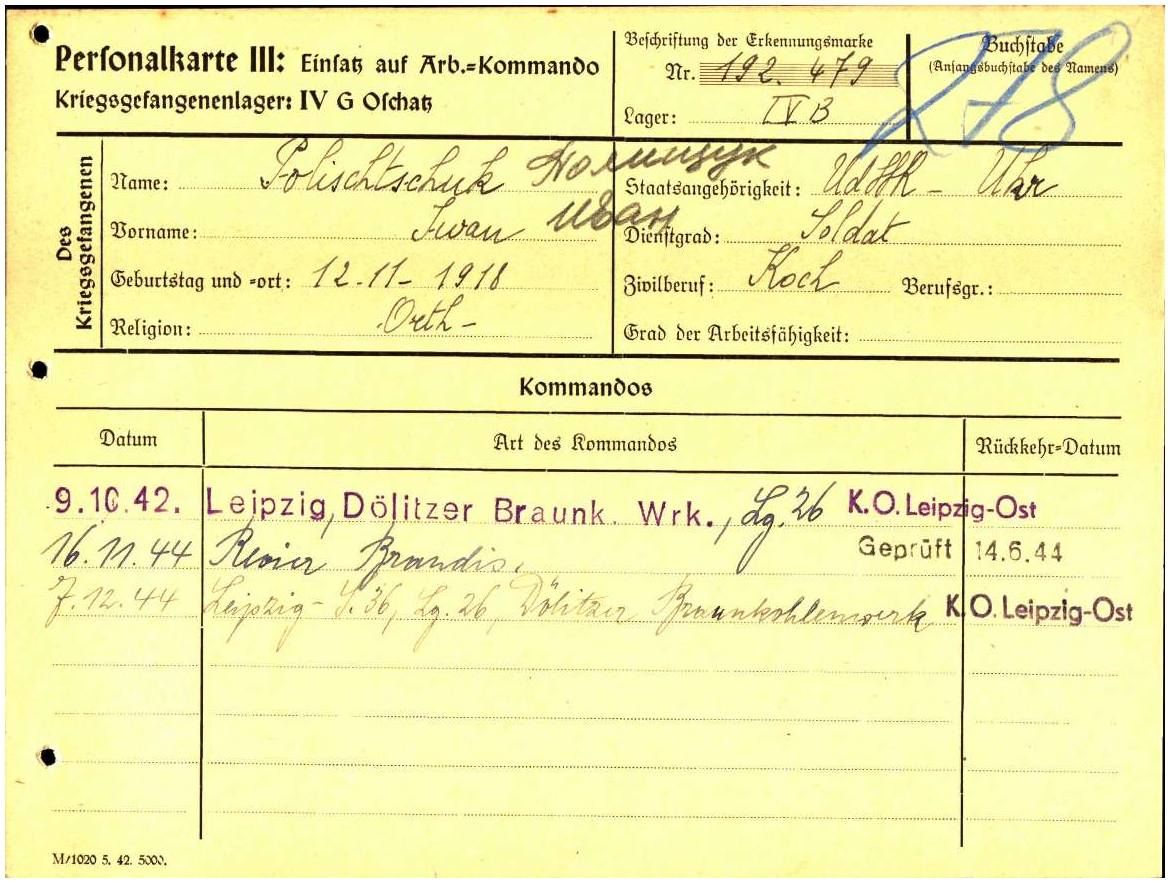 Personalkarte III: Einsatz auf Arb.=Kommando
Kriegsgefangenenlager: IV G Oschatz
Beschriftung der Erkennungsmarke
Nr. 192.479
Lager: IV B
Buchstabe
(Anfangsbuchstabe des Namens)
278
Des Kriegsgefangenen
Name: Polischtschuk Полищук
Vorname: Iwan Иван
Geburtstag und =ort: 12.11-1918
Religion: Orth-
Staatsangehörigkeit: UdSSR - Ukr
Dienstgrad: Soldat
Zivilberuf: Koch Berufsgr.:
Grad der Arbeitsfähigkeit:
Kommandos
Datum Art des Kommandos Rückkehr=Datum
9.10.42. Leipzig, Dölitzer Braunk. Wrk., Lg. 26 K.O. Leipzig-Ost
16.11.44 Revier Brandis. Geprüft 14.6.44
7.12.44 Leipzig - S. 36, Lg. 26, Dölitzer Braunkohlenwerk K.O. Leipzig-Ost
M/1020 5. 42. 5000.